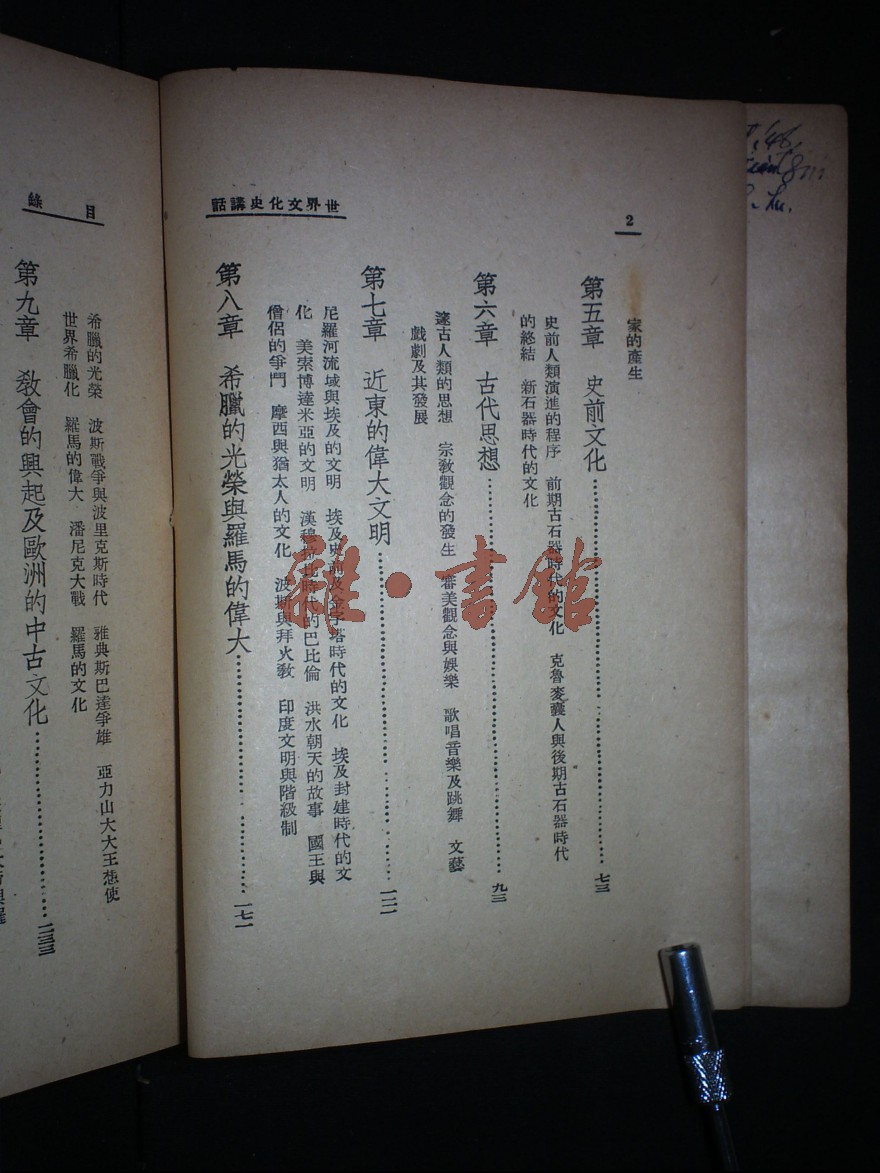 2
世界文化史講話
家的產生
第五章 史前文化 七三
史前人類演進的程序 前期古石器時代的文化 克魯麥囊人與後期古石器時代
的終結 新石器時代的文化
第六章 古代思想 九三
邃古人類的思想 宗教觀念的發生 審美觀念與娛樂 歌唱音樂及跳舞 文藝
戲劇及其發展
第七章 近東的偉大文明 一二一
尼羅河流域與埃及的文明 埃及史前及金字塔時代的文化 埃及封建時代的文
化 美索博達米亞的文明 漢穆拉比時代的巴比倫 洪水朝天的故事 國王與
僧侶的爭鬥 摩西與猶太人的文化 波斯與拜火教 印度文明與階級制
第八章 希臘的光榮與羅馬的偉大 一七一
目錄
希臘的光榮 波斯戰爭與波里克斯時代 雅典斯巴達爭雄 亞力山大大王想使
世界希臘化 羅馬的偉大 潘尼克大戰 羅馬的文化
第九章 教會的興起及歐洲的中古文化 二三三
雜·書館